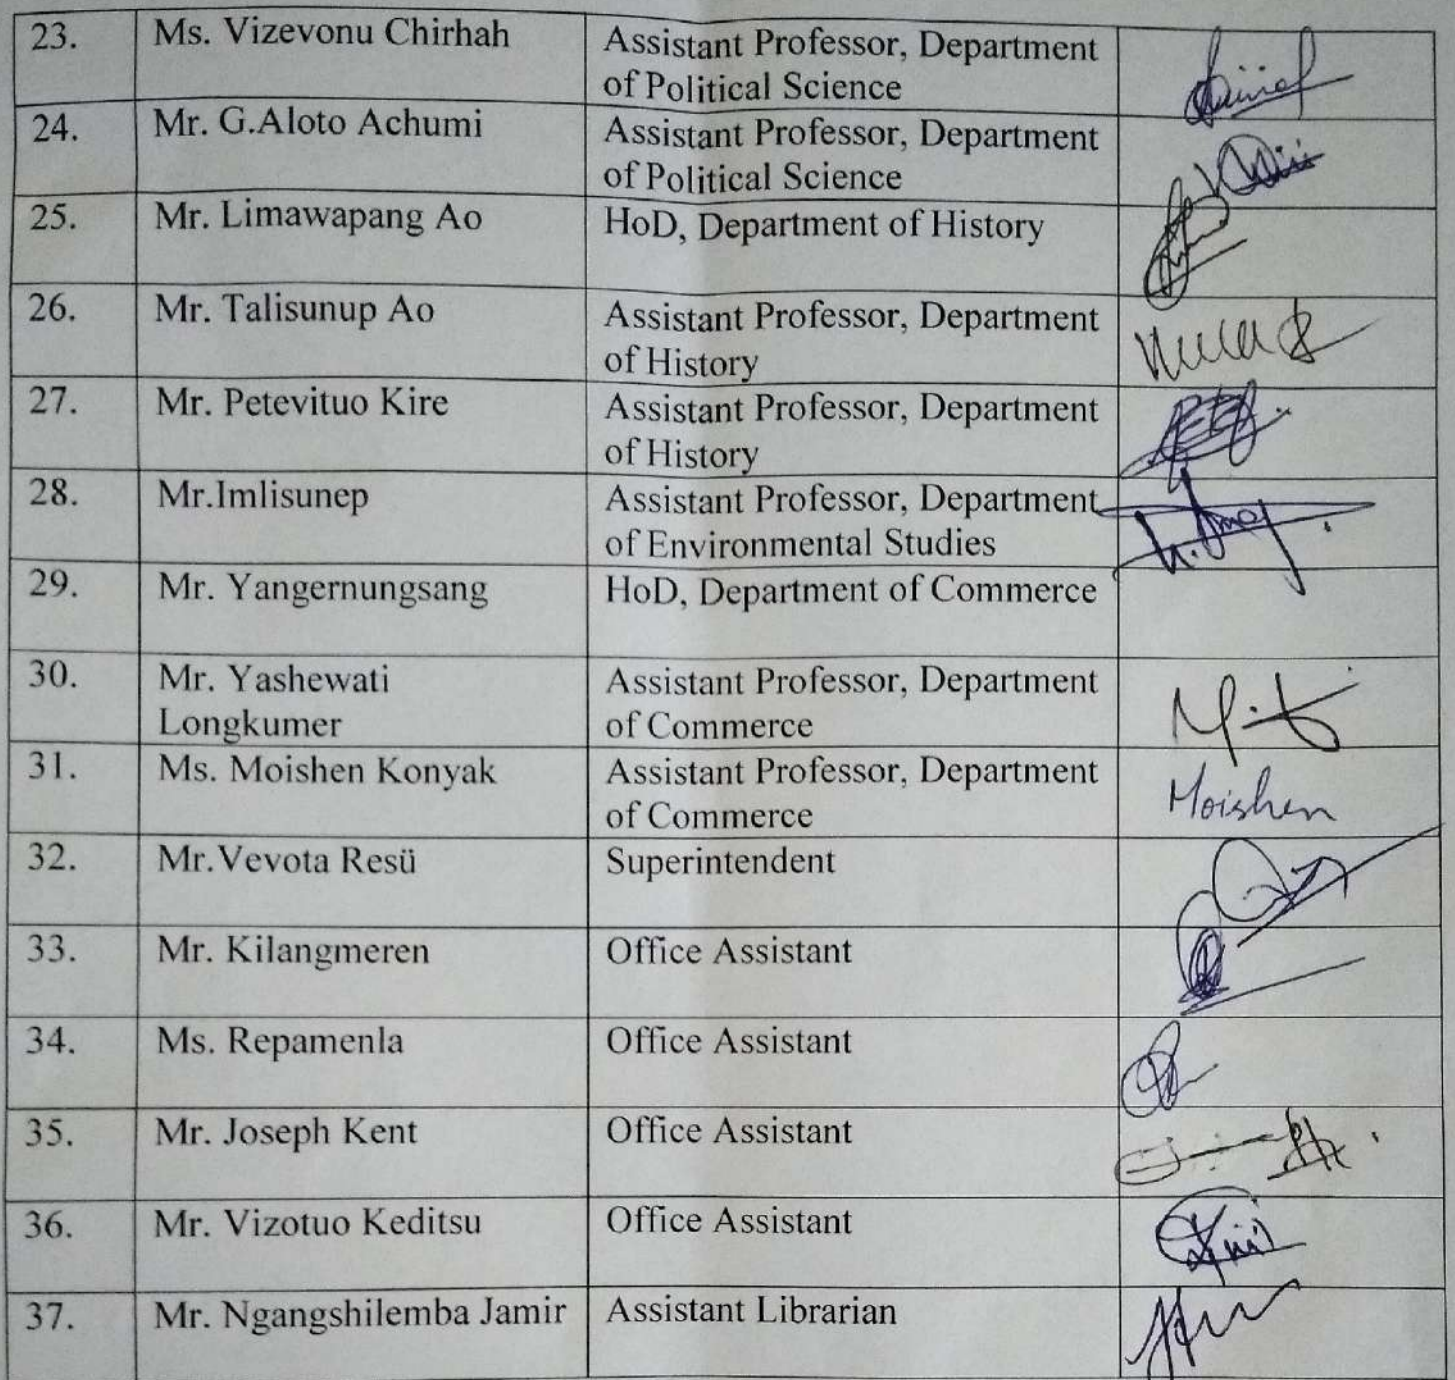 23. Ms. Vizevonu Chirhah Assistant Professor, Department
of Political Science
24. Mr. G.Aloto Achumi Assistant Professor, Department
of Political Science
25. Mr. Limawapang Ao HoD, Department of History
26. Mr. Talisunup Ao Assistant Professor, Department
of History
27. Mr. Petevituo Kire Assistant Professor, Department
of History
28. Mr.Imlisunep Assistant Professor, Department
of Environmental Studies
29. Mr. Yangernungsang HoD, Department of Commerce
30. Mr. Yashewati Assistant Professor, Department
Longkumer of Commerce
31. Ms. Moishen Konyak Assistant Professor, Department
of Commerce Moishen
32. Mr.Vevota Resü Superintendent
33. Mr. Kilangmeren Office Assistant
34. Ms. Repamenla Office Assistant
35. Mr. Joseph Kent Office Assistant
36. Mr. Vizotuo Keditsu Office Assistant
37. Mr. Ngangshilemba Jamir Assistant Librarian